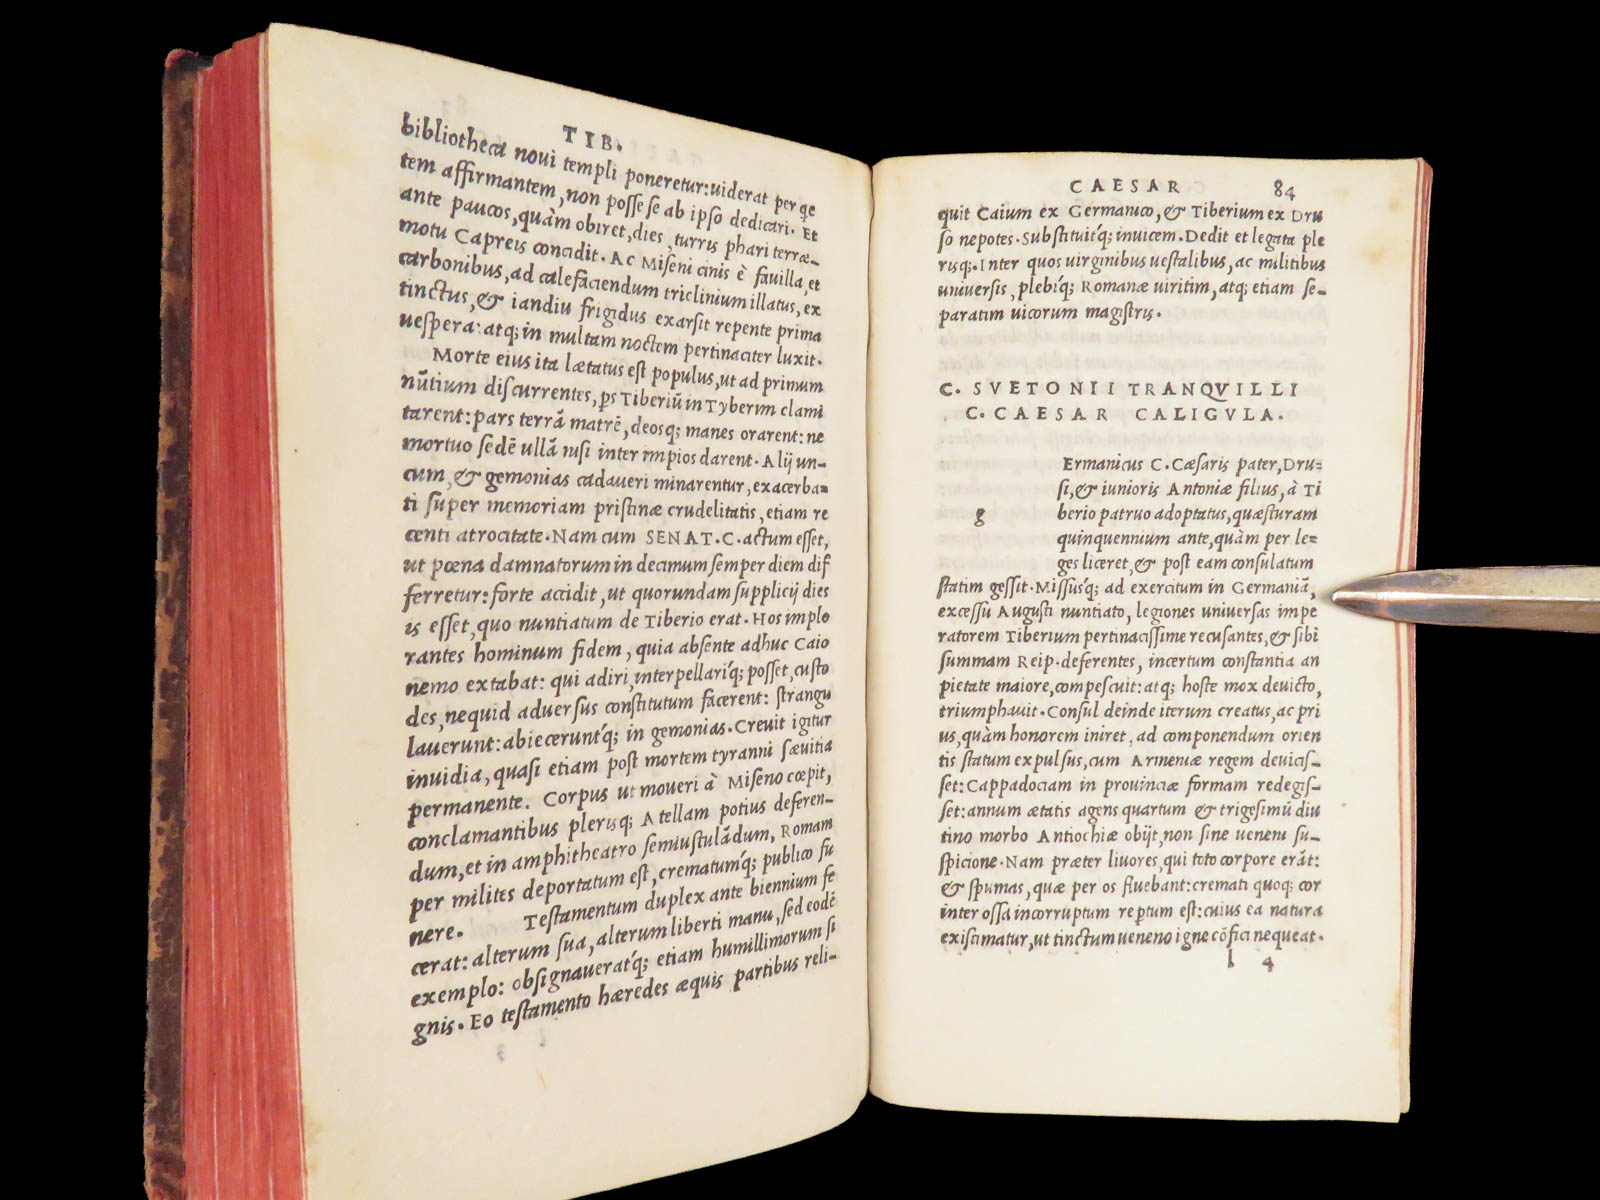 TIB.
bibliotheca noui templi poneretur:uiderat per qe
tem affirmantem, non posse se ab ipso dedicari. Et
ante paucos, quàm obiret, dies, turris phari terræ-
motu Capreis concidit. Ac Miseni cinis è fauilla, et
carbonibus, ad calefaciendum triclinium illatus, ex
tinctus, & iandiu frigidus exarsit repente prima
uespera: atq; in multam noctem pertinaciter luxit.
Morte eius ita lætatus est populus, ut ad primum
nūtium discurrentes, ps Tiberiū in Tyberim clami
tarent: pars terrā matrē, deosq; manes orarent: ne
mortuo sedē ullā nisi inter impios darent. Alij un-
cum, & gemonias cadaueri minarentur, exacerba=
ti super memoriam pristinæ crudelitatis, etiam re
centi atrocitate. Nam cum SENAT. C. actum esset,
ut pœna damnatorum in decimum semper diem dif
ferretur: forte accidit, ut quorundam supplicij dies
is esset, quo nuntiatum de Tiberio erat. Hos implo
rantes hominum fidem, quia absente adhuc Caio
nemo extabat: qui adiri, interpellariq́; posset, custo
des, nequid aduersus constitutum facerent: strangu
lauerunt: abieceruntq́; in gemonias. Creuit igitur
inuidia, quasi etiam post mortem tyranni sæuitia
permanente. Corpus ut moueri à Miseno cœpit,
conclamantibus plerisq; Atellam potius deferen-
dum, et in amphitheatro semiustulādum, Romam
per milites deportatum est, crematumq́; publico fu
nere. Testamentum duplex ante biennium fe
cerat: alterum sua, alterum liberti manu, sed eodē
exemplo: obsignaueratq́; etiam humillimorum si
gnis. Eo testamento hæredes æquis partibus reli-
CAESAR 84
quit Caium ex Germanico, & Tiberium ex Dru
so nepotes. Substituitq́; inuicem. Dedit et legata ple
risq;. Inter quos uirginibus uestalibus, ac militibus
uniuersis, plebiq́; Romanæ uiritim, atq; etiam se-
paratim uicorum magistris.
C. SVETONII TRANQVILLI
C. CAESAR CALIGVLA.
g
Ermanicus C. Cæsaris pater, Dru=
si, & iunioris Antoniæ filius, à Ti
berio patruo adoptatus, quæsturam
quinquennium ante, quàm per le=
ges liceret, & post eam consulatum
statim gessit. Missusq́; ad exercitum in Germaniā,
excessū Augusti nuntiato, legiones uniuersas impe
ratorem Tiberium pertinacissime recusantes, & sibi
summam Reip. deferentes, incertum constantia an
pietate maiore, compescuit: atq; hoste mox deuicto,
triumphauit. Consul deinde iterum creatus, ac pri
us, quàm honorem iniret, ad componendum orien
tis statum expulsus, cum Armeniæ regem deuicis-
set: Cappadociam in prouinciæ formam redegis-
set: annum ætatis agens quartum & trigesimū diu
tino morbo Antiochiæ obijt, non sine ueneni su-
spicione. Nam præter liuores, qui toto corpore erāt:
& spumas, quæ per os fluebant: cremati quoq; cor
inter ossa incorruptum reptum est: cuius ea natura
existimatur, ut tinctum ueneno igne cōfici nequeat.
l 4